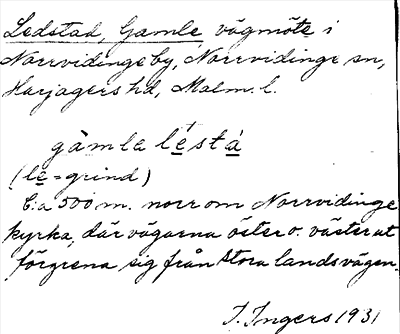 Ledstad, Gamle vägmöte i
Norrvidinge by, Norrvidinge sn,
Harjagers hd, Malm. l.
gàmla lésta
(le = grind)
C:a 500 m. norr om Norrvidinge
kyrka, där vägarna öster o. väster ut
förgrena sig från stora landsvägen.
I. Ingers 1931